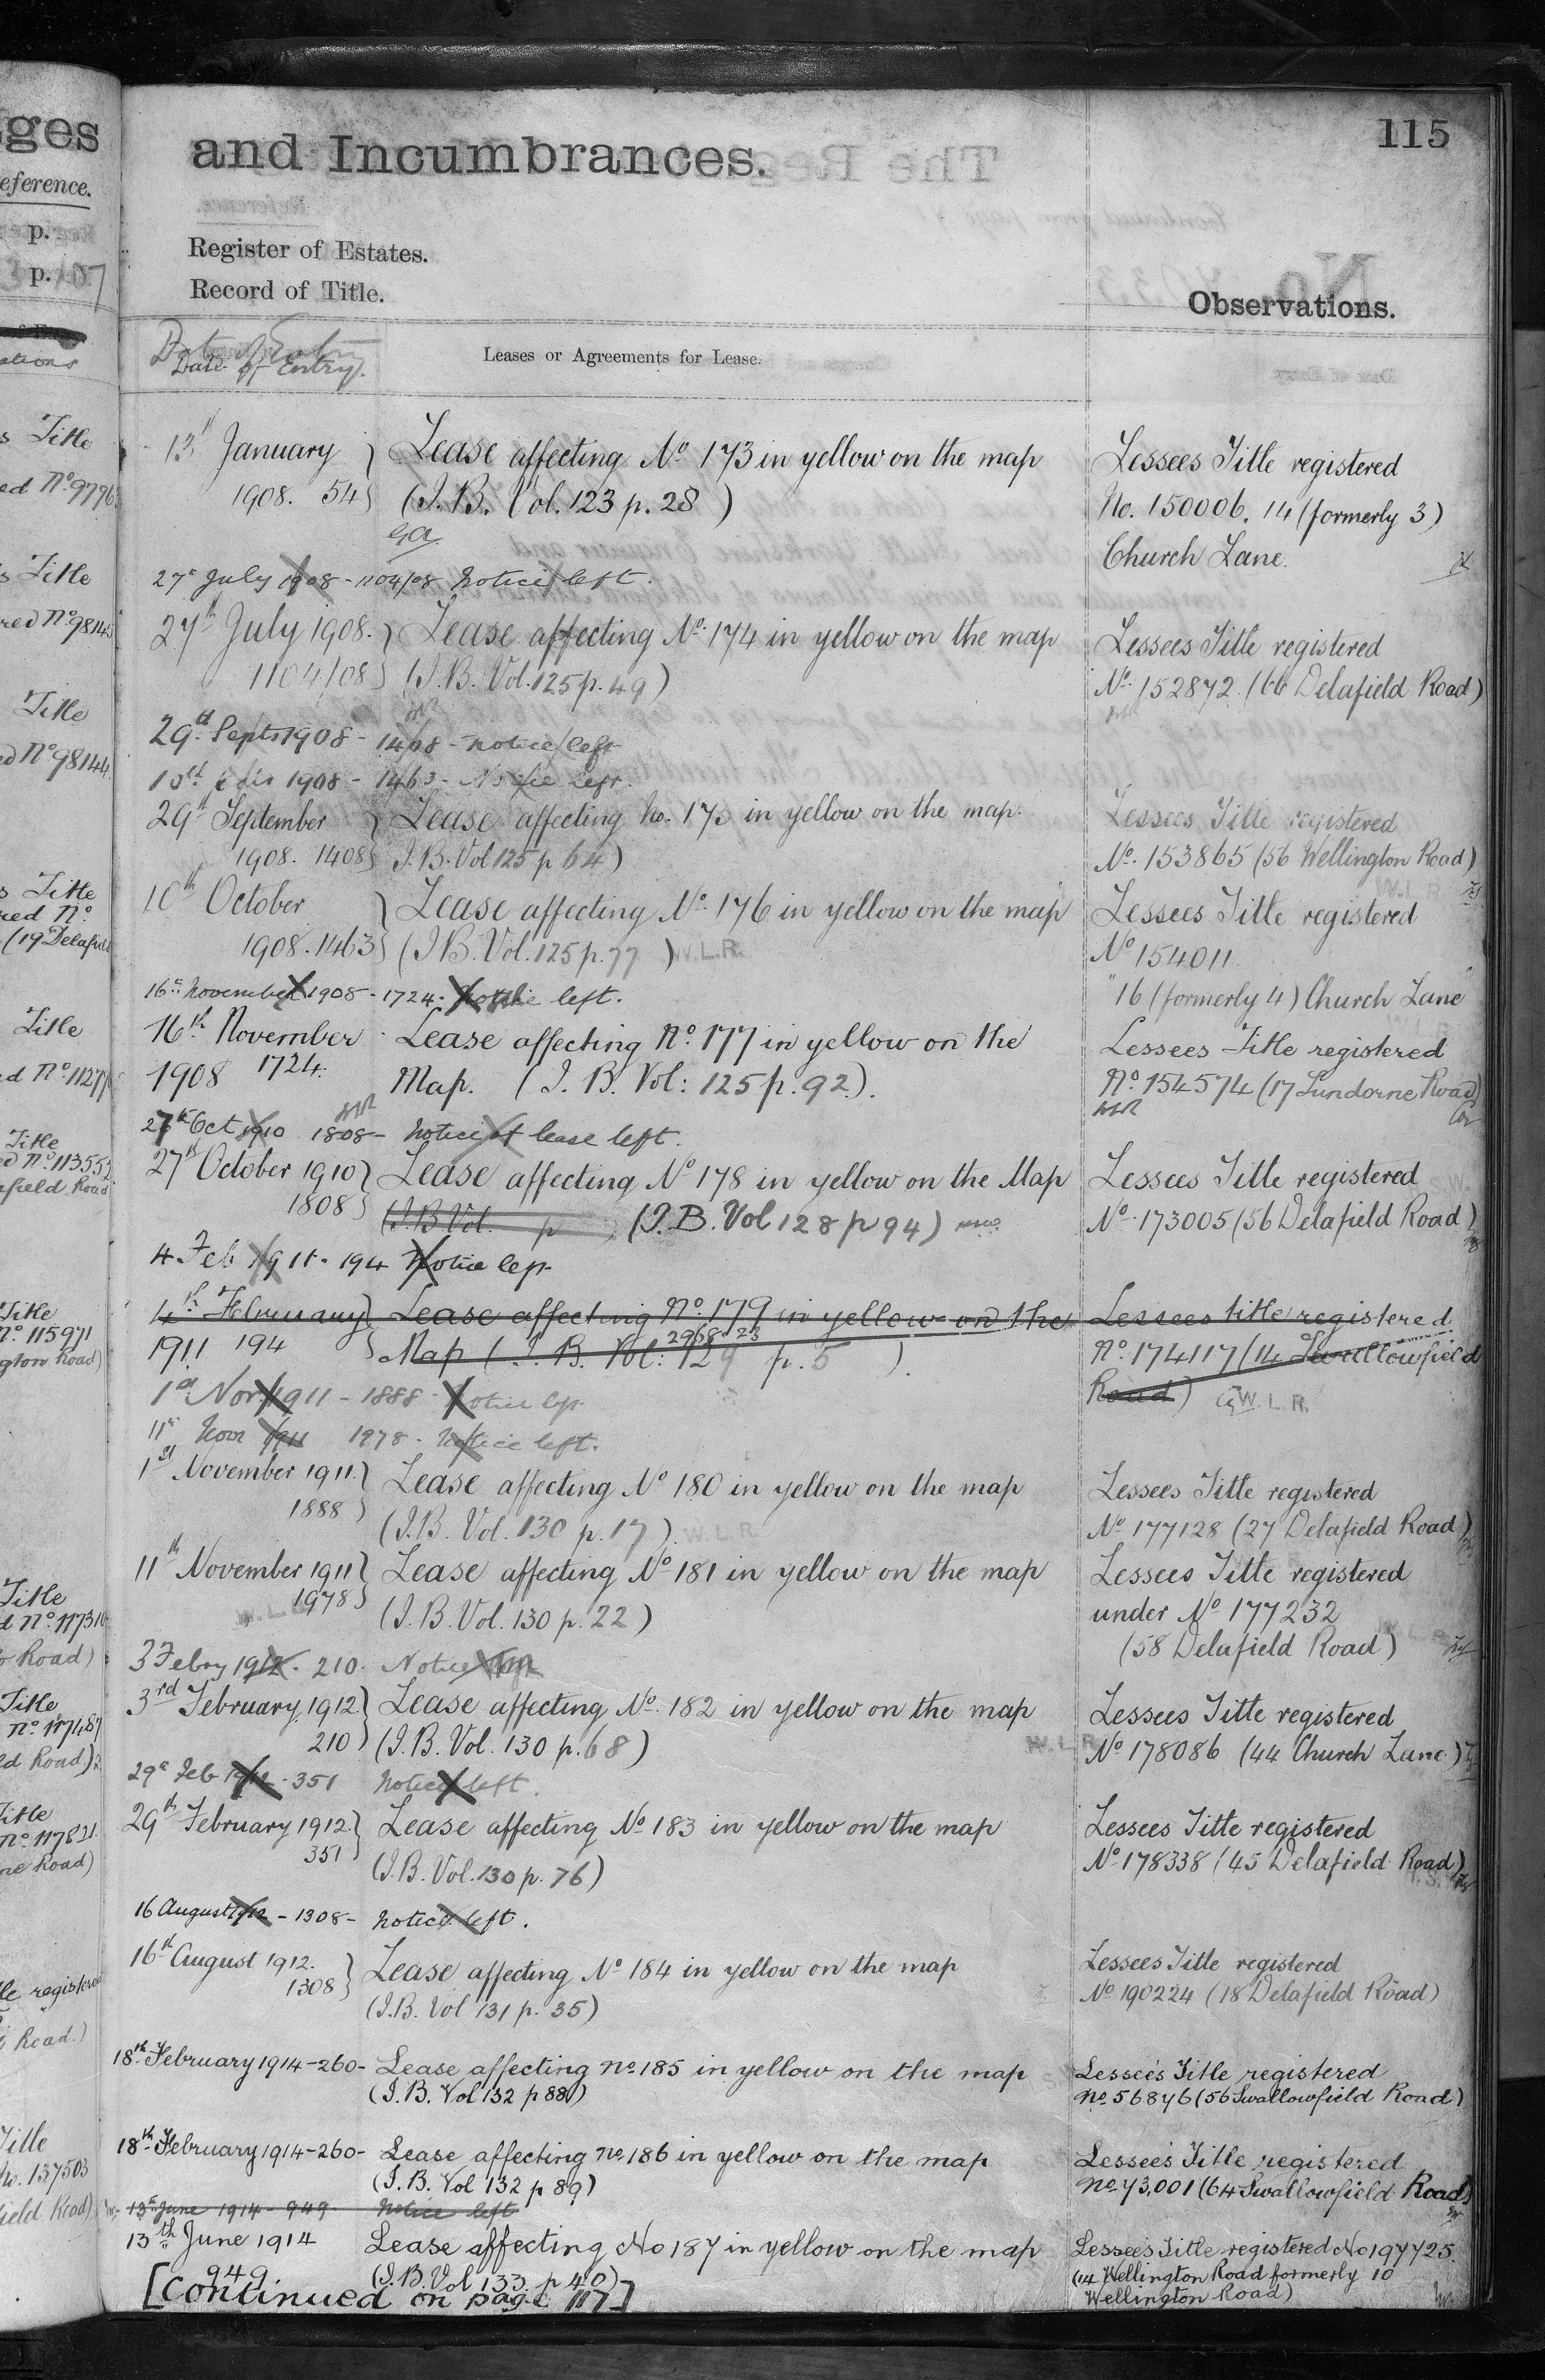 115
and Incumbrances.
Register of Estates.
Record of Title.
Observations.
Date of Entry.
Leases or Agreements for Lease.
13th January 1908. 54
Lease affecting No 173 in yellow on the map
(I.B. Vol. 123 p. 28 )
Lessees Title registered
No. 150006. 14 (formerly 3)
Church Lane.
27th July 1908 - 1104/08 Notice left.
27th July 1908. 1104/08
Lease affecting No. 174 in yellow on the map
(I.B. Vol. 125 p. 49)
Lessees Title registered
No. 152872. (66 Delafield Road)
29th Septr 1908 - 1408 - Notice left
10th 1908 - 1463 - Notice left.
29th September 1908. 1408
Lease affecting No. 175 in yellow on the map.
I.B. Vol 125 p 64)
Lessees Title registered
No. 153865 (56 Wellington Road)
W.L.R.
10th October 1908. 1463
Lease affecting No. 176 in yellow on the map
(I.B. Vol. 125 p. 77 ) W.L.R.
Lessees Title registered
No 154011
16 (formerly 4) Church Lane
16th November 1908 - 1724. Notice left.
16th November 1908 1724.
Lease affecting No. 177 in yellow on the
Map. (I.B. Vol: 125 p. 92.).
Lessees Title registered
No 154574 (17 Lundorne Road)
27th Oct 1910 1808 - Notice of lease left.
27th October 1910 1808
Lease affecting No 178 in yellow on the Map
(I.B. Vol. p (I.B. Vol 128 p 94)
Lessees Title registered
No. 173005 (56 Delafield Road)
4 Feb 1911 - 194 Notice left
4th February 1911 194
Lease affecting No. 179 in yellow on the
Map (I.B. Vol: 129 p. 5 ).
Lessees title registered
No. 174117 (14 Swallowfield
Road) W.L.R.
1st Nov 1911 - 1888 - Notice left
11th Novr 1911 1978 - Notice left.
1st November 1911. 1888
Lease affecting No 180 in yellow on the map
(I.B. Vol. 130 p. 17 ) W.L.R.
Lessees Title registered
No 177128 (27 Delafield Road)
11th November 1911 1978
Lease affecting No 181 in yellow on the map
(I.B. Vol. 130 p. 22 )
Lessees Title registered
under No 177232
(58 Delafield Road)
3 Febry 1912. 210. Notice left
3rd February 1912. 210
Lease affecting No. 182 in yellow on the map
(I.B. Vol. 130 p. 68 )
W.L.R.
Lessees Title registered
No 178086 (44 Church Lane)
29th Feb 1912 - 351 Notice left.
29th February 1912. 351
Lease affecting No 183 in yellow on the map
(I.B. Vol. 130 p. 76 )
Lessees Title registered
No 178338 (45 Delafield Road)
16 August 1912 - 1308 - Notice left.
16th August 1912. 1308
Lease affecting No 184 in yellow on the map
(I.B. Vol 131 p. 35)
Lessees Title registered
No 190224 (18 Delafield Road)
18th February 1914 - 260 -
Lease affecting no. 185 in yellow on the map
(I.B. Vol 132 p 88)
Lessee's Title registered
no. 56876 (56 Swallowfield Road)
18th February 1914 - 260 -
Lease affecting no. 186 in yellow on the map
(I.B. Vol 132 p 89)
Lessee's Title registered
no. 73,001 (64 Swallowfield Road)
13th June 1914 - 949 - Notice left
13th June 1914 949
Lease affecting No 187 in yellow on the map
(I.B. Vol 133 p 40)
Lessee's Title registered No 197725.
(14 Wellington Road formerly 10
Wellington Road)
[Continued on page 117]